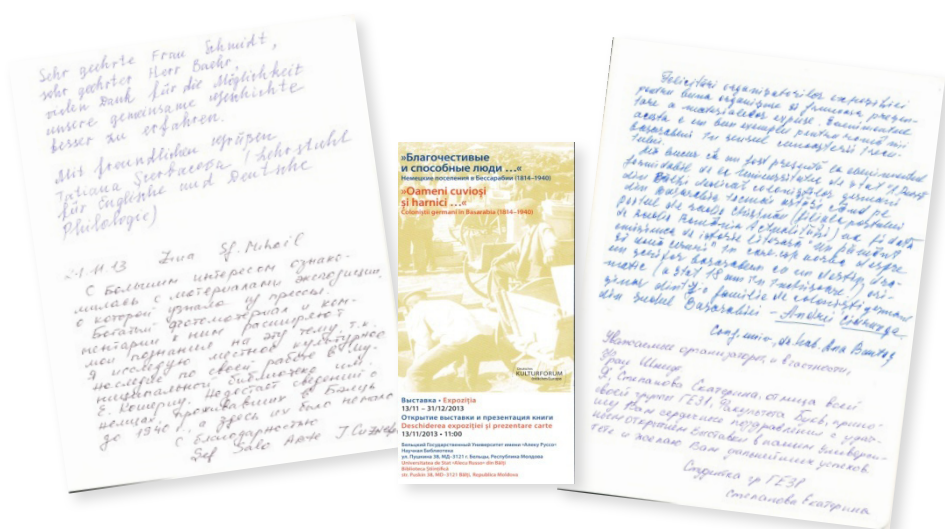 Sehr geehrte Frau Schmidt,
sehr geehrter Herr Baehr,
vielen Dank für die Möglichkeit
unsere gemeinsame Geschichte
besser zu erfahren.
Mit freundlichen Grüßen
Tatiana Lehrstuhl
für Englische und Deutsche
Philologie)
21.11.13 Ziua Sf. Mihail
С большим интересом ознако-
милась с материалами экспозиции,
о которой узнала из прессы.
Богатый фотоматериал и ком-
ментарии к ним расширяют
мои познания на эту тему, т.к.
я исследую местное культурное
наследие по своей работе в му-
ниципальной библиотеке им.
Е. Кошериу. Недостает сведений о
немцах, проживавших в Бэлць
до 1940 г. а здесь их было немало
С благодарностью
Șef
»Благочестивые
и способные люди …«
Немецкие поселения в Бессарабии (1814–1940)
»Oameni cuvioși
și harnici …«
Coloniștii germani în Basarabia (1814–1940)
KULTURFORUM
Выставка • Expoziția
13/11 – 31/12/2013
Открытие выставки и презентация книги
Deschiderea expoziției și prezentare carte
13/11/2013 • 11:00
Бельцкий Государственный Университет имени «Алеку Руссо»
Научная Библиотека
ул. Пушкина 38, МД-3121 г. Бельцы, Республика Молдова
Universitatea de Stat «Alecu Russo» din Bălți
Biblioteca Științifică
str. Pușkin 38, MD-3121 Bălți, Republica Moldova
Felicitări organizatorilor expoziției
pentru buna organizare și frumoasa prezen-
tare a materialelor expuse. Evenimentul
acesta e un bun exemplu pentru
basarabeni în sensul cunoașterii
Mă bucur că am fost prezentă la evenimentul
la Universitatea de Stat "A. Russo"
din Bălți dedicat coloniștilor germani
din Basarabia tocmai astăzi când pe
postul de radio Chișinău
de radio România Actualități) au
emisiunea de istorie literară
vorba despre
un scriitor basarabean cu un destin dra-
matic (a stat 18 ani în închisoare) ori-
ginar dintr-o familie de coloniști germani
din sudul Basarabiei –
Уважаемые организаторы, в частности,
фрау Шмидт
Я, Степанова Екатерина, от лица всей
своей группы
шу Вам сердечные поздравления с
открытием выставки в нашем Универси-
тете и желаю Вам дальнейших успехов.
Студентка гр
Степанова Екатерина